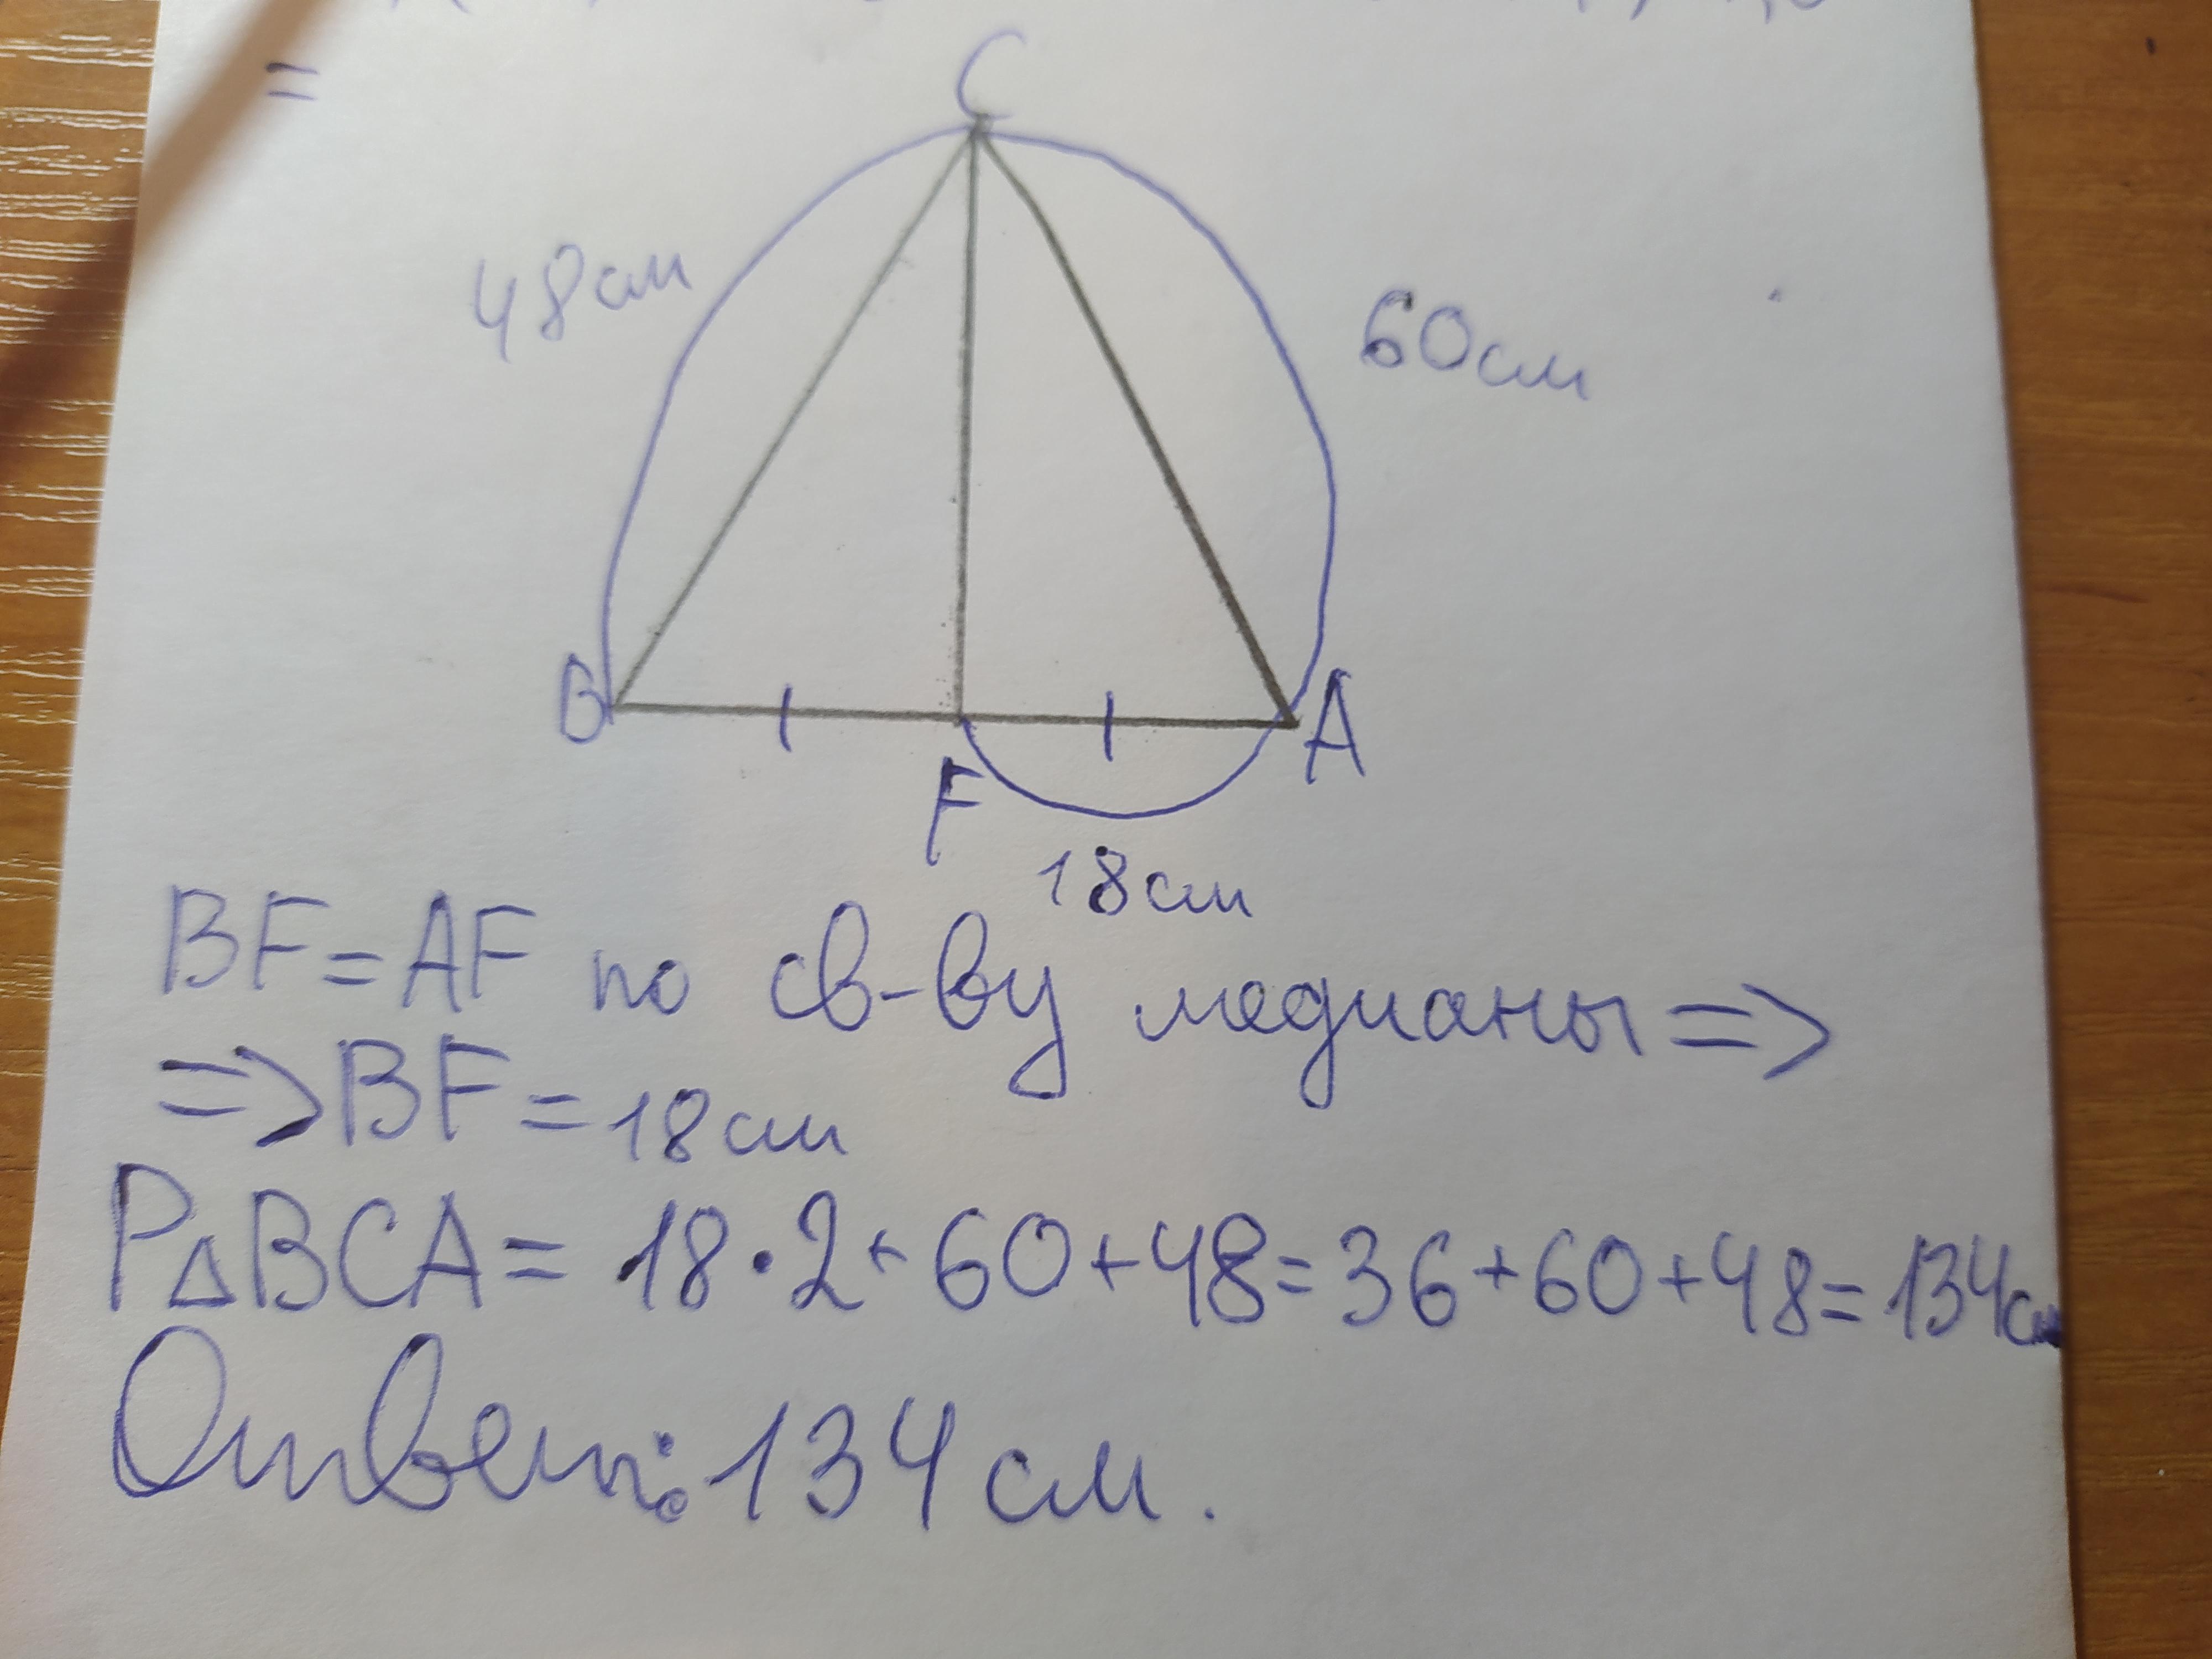 =
C
48см
60см
B
A
F
18см
BF=AF по св-ву медианы=>
=>BF=18см
P△BCA=18·2+60+48=36+60+48=134см
Ответ: 134 см.